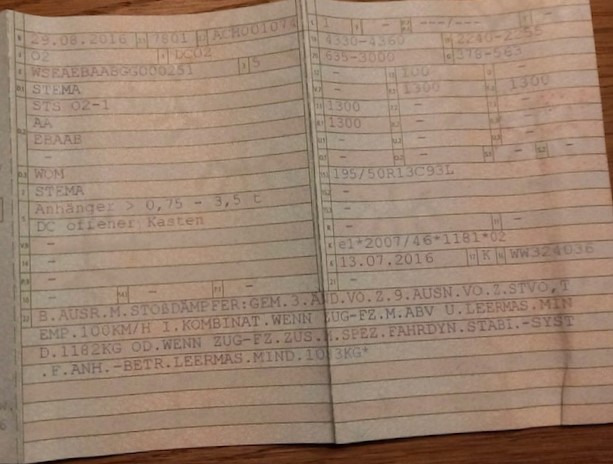 B 29.08.2016 7801 ACH001074
02 DC02
WSEAEBAABGG000251 5
STEMA
STS 02-1
AA
EBAAB
-
WOM
STEMA
Anhänger > 0,75 - 3,5 t
DC offener Kasten
-
-
-
- - -
1 - ---/--- -
4330-4360 2240-2355
635-3000 376-563
- 100 -
- 1300 1300
1300 - -
1300 - -
- - -
- - - -
195/50R13C93L
-
-
- -
K e1*2007/46*1181*02
6 13.07.2016 17 K 16 WW324036
21 -
22 B.AUSR.M.STOßDÄMPFER:GEM.3.ÄND.VO.Z.9.AUSN.VO.Z.STVO,T
EMP.100KM/H I.KOMBINAT.WENN ZUG-FZ.M.ABV U.LEERMAS.MIN
D.1182KG OD.WENN ZUG-FZ.ZUS.M.SPEZ.FAHRDYN.STABI.-SYST
.F.ANH.-BETR.LEERMAS.MIND.1083KG*